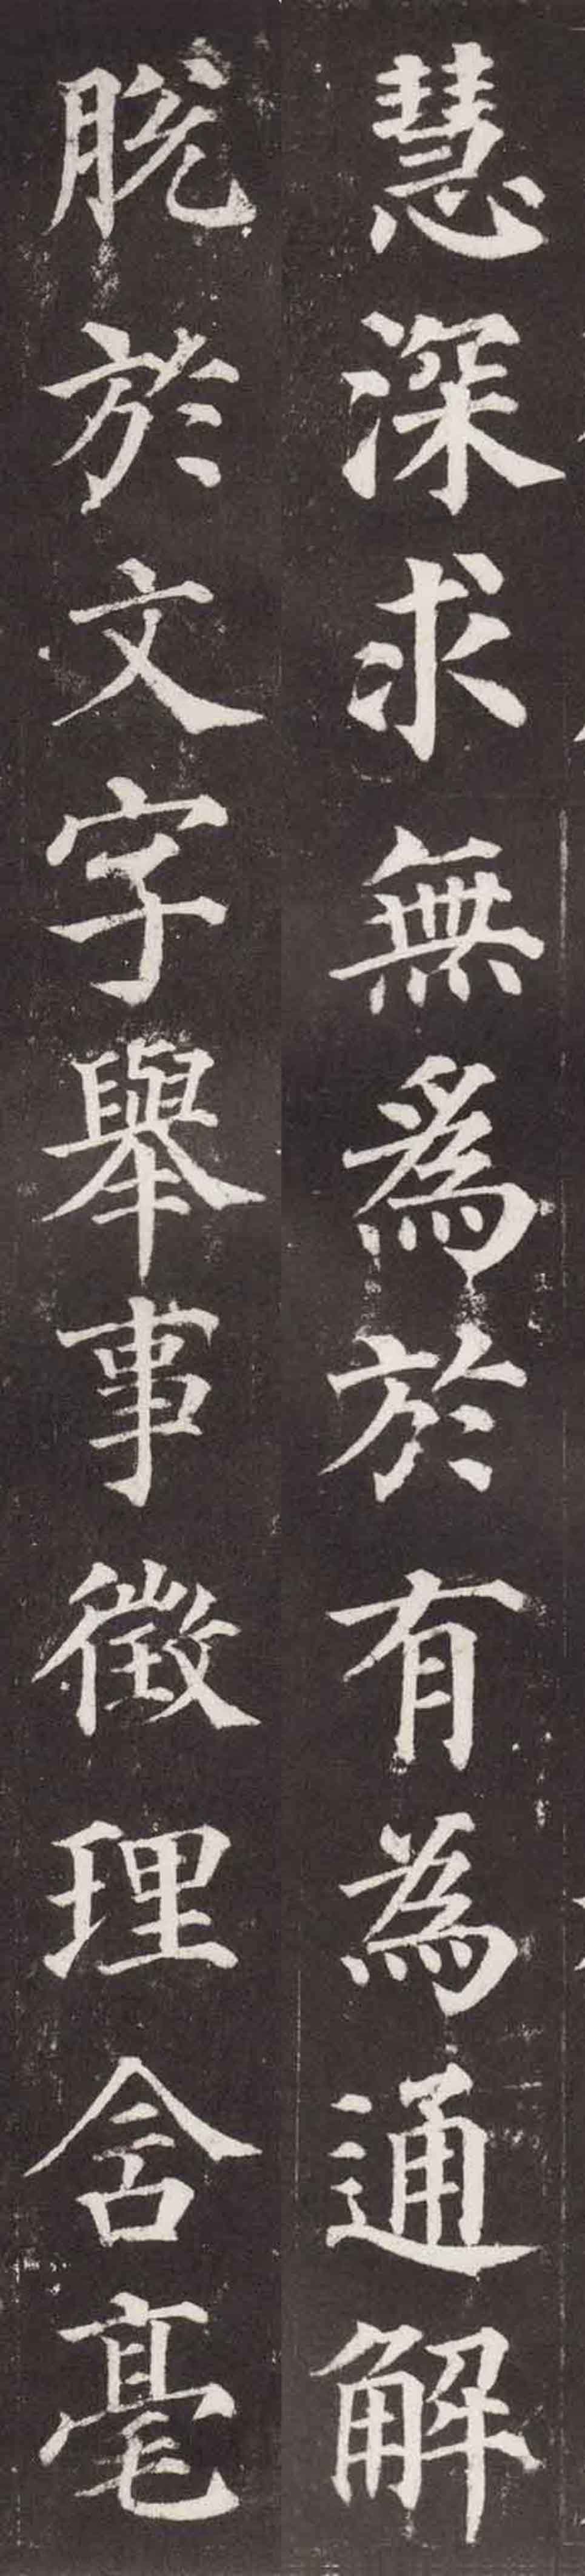 慧深求無為於有為通解
脫於文字舉事徵理含毫